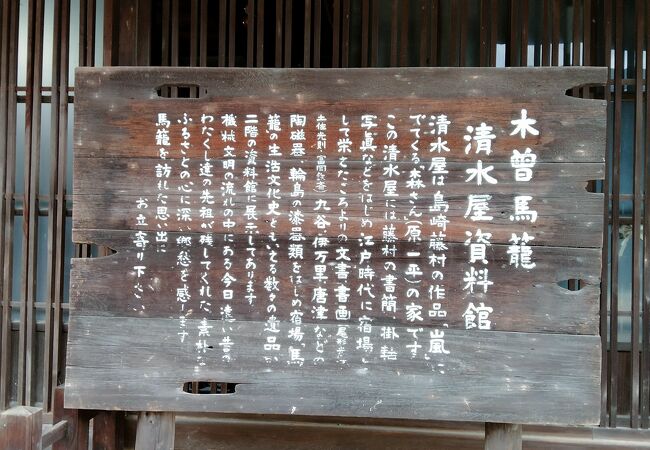 木曽馬籠
清水屋資料館
清水屋は島崎藤村の作品「嵐」に
でてくる森さん(原一平)の家です
この清水屋には、藤村の書簡、掛軸
写真などをはじめ、江戸時代に「宿場」と
して栄えたころよりの文書、書画
九谷、伊万里、唐津などの
陶磁器、輪島の漆器類をはじめ宿場「馬
籠の生活文化史」ともいえる数々の遺品が
二階の資料館に展示してあります
機械文明の流れの中にある今日、遠い昔の
わたくし達の先祖が残してくれた、素朴な
ふるさとの心に深い郷愁を感じます
馬籠を訪れた思い出に
お立寄り下さい